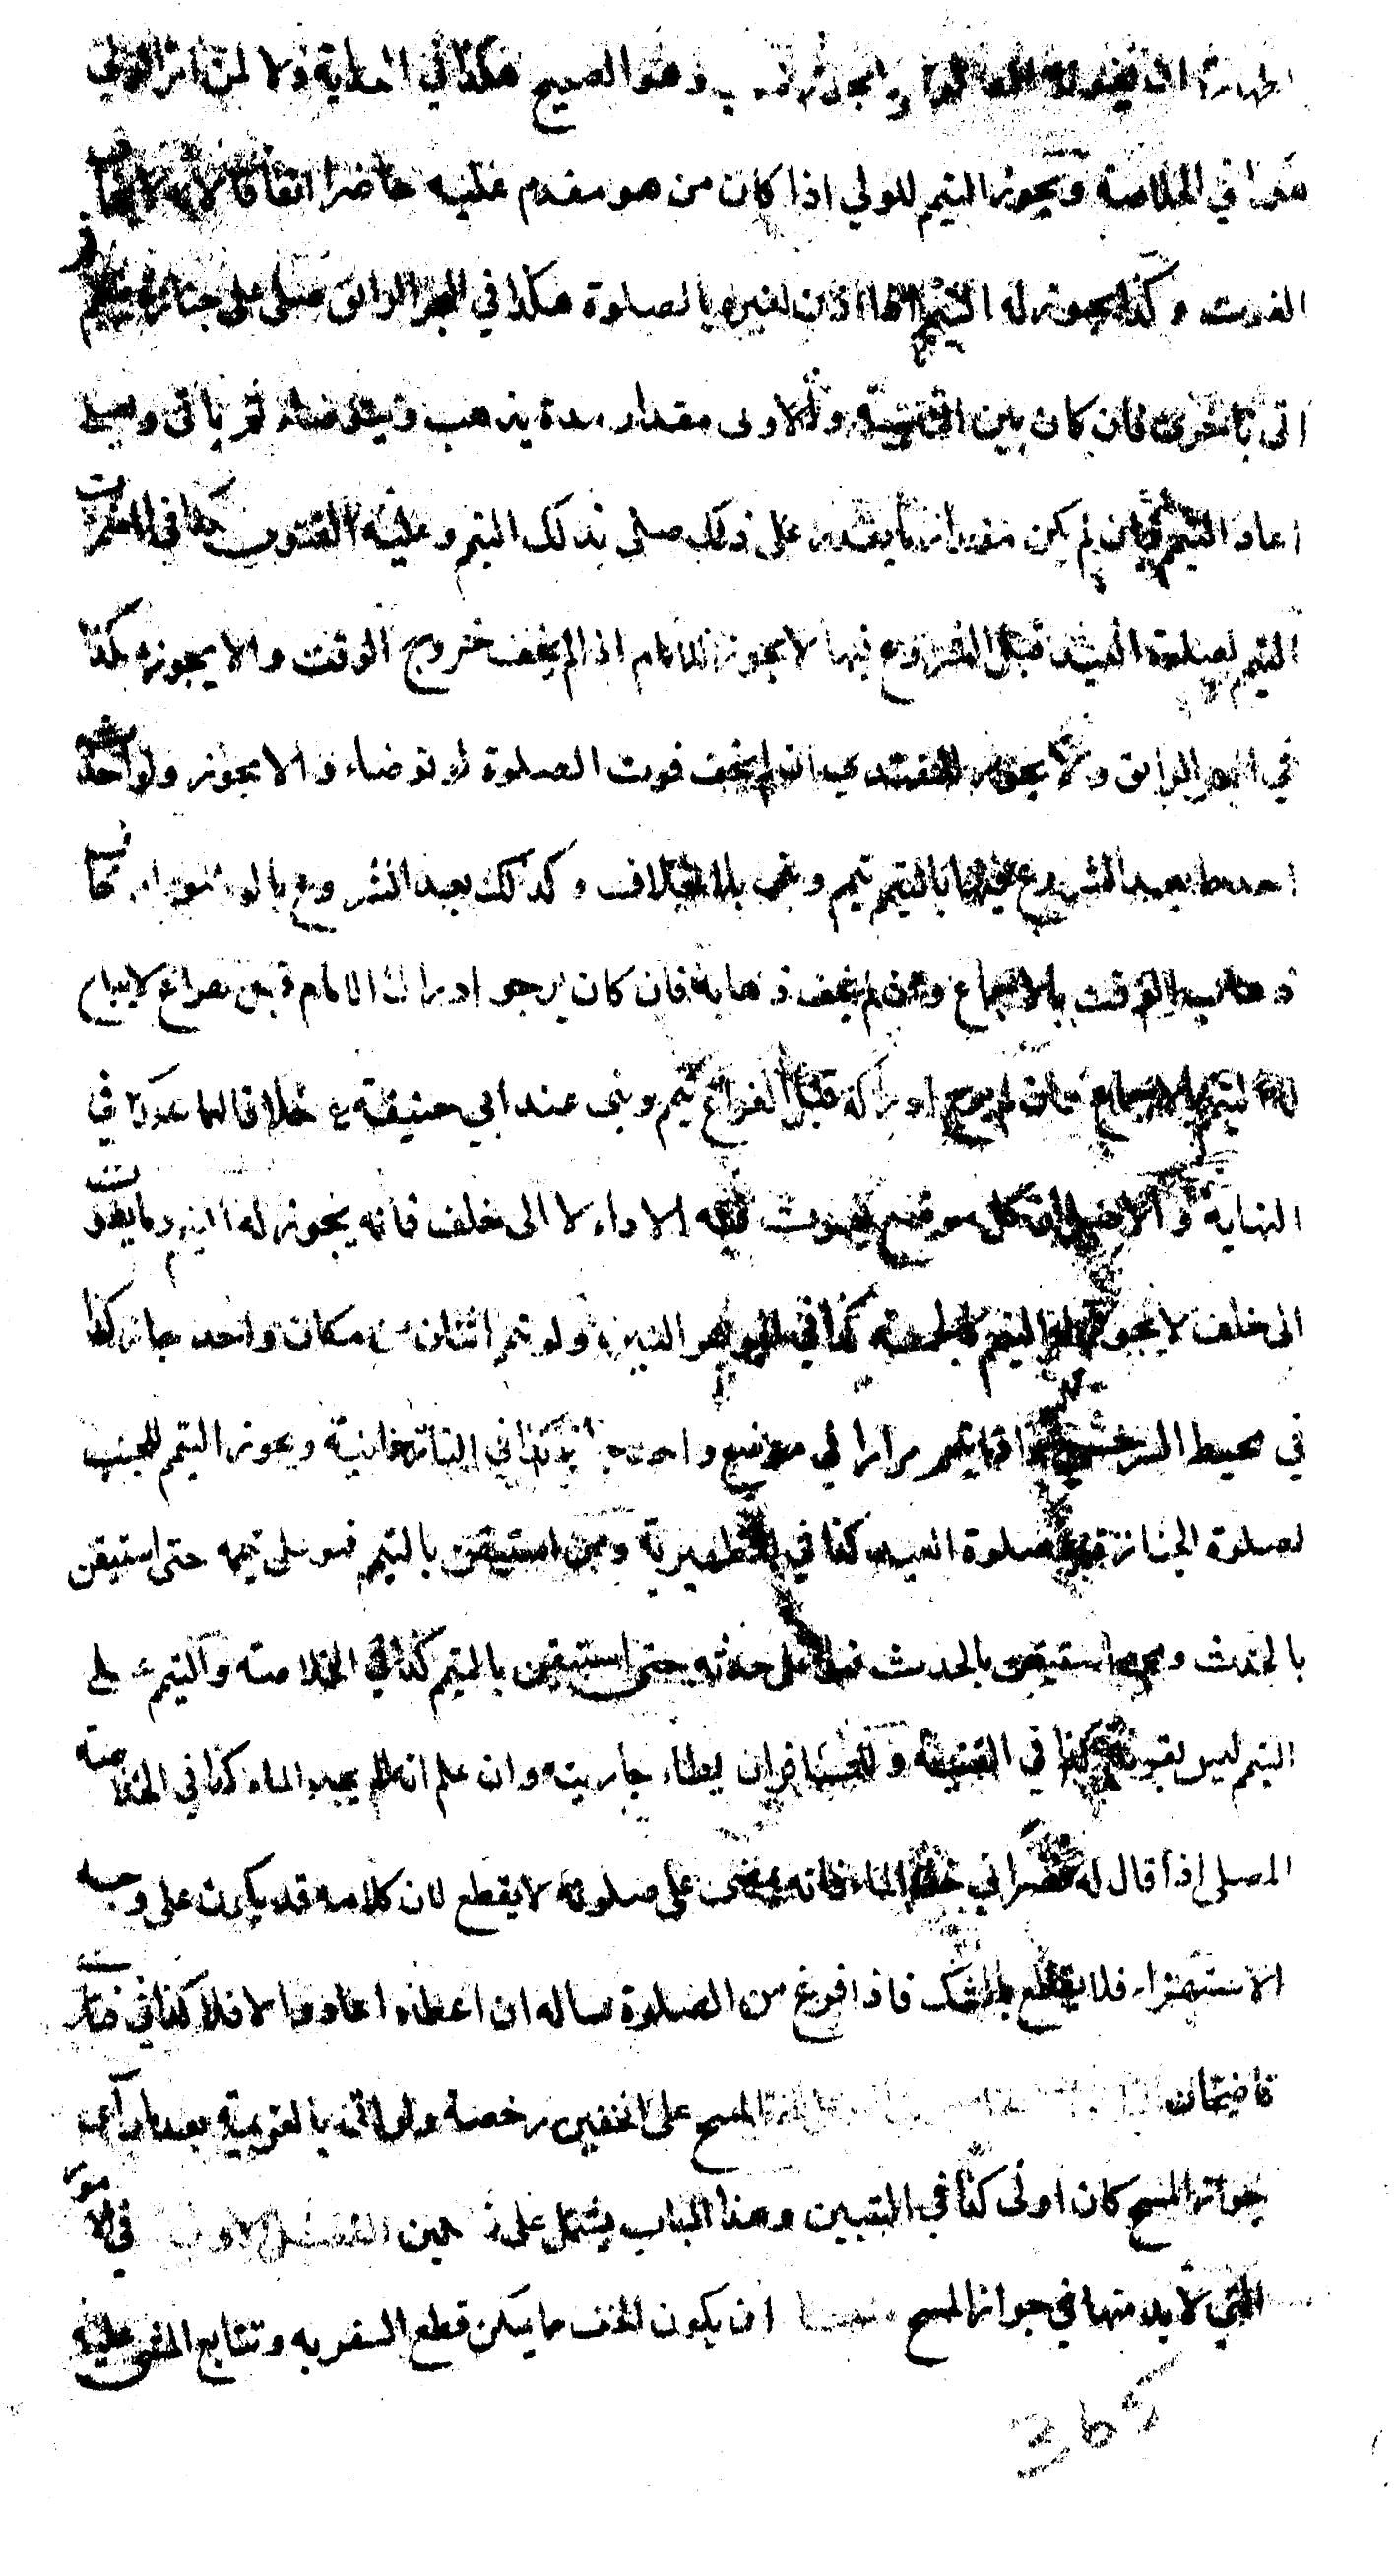 وهو الصحيح هكذا في الهداية ولا لمن امره الولي
هكذا في الخلاصة ويجوز التيمم للولي اذا كان من هو مقدم عليه حاضرا اتفاقا لانه يخاف
الفوت وكذا يجوز له التيمم اذا اذن لغيره بالصلوة هكذا في البحر الرائق صلى على جنازة بتيمم
اتى باخرى فان كان بين الثانية والاولى مقدار مدة يذهب ويتوضاء ثم ياتي ويصلي
اعاد التيمم وان لم يكن مقدار ما يقدر على ذلك صلى بذلك التيمم وعليه الفتوى هكذا في المضمرات
التيمم لصلوة العيد قبل الشروع فيها لا يجوز للامام اذا لم يخف خروج الوقت والا يجوز هكذا
في البحر الرائق ولا يجوز للمقتدي ان لم يخف فوت الصلوة لو توضاء والا يجوز ولو احدث
احدهما بعد الشروع فيها بالتيمم تيمم وبنى بلا خلاف وكذلك بعد الشروع بالوضوء ان خاف
ذهاب الوقت بالاجماع وان لم يخف ذهابه فان كان يرجو ادراك الامام قبل الفراغ لا يباح
له التيمم بالاجماع فان لم يرج ادراكه قبل الفراغ تيمم وبنى عند ابي حنيفة ع خلافا لهما هكذا في
النهاية والاصل ان كل موضع يفوت فيه الاداء لا الى خلف فانه يجوز له التيمم وما يفوت
الى خلف لا يجوز له التيمم كالجمعة كذا في الجوهر النيرة ولو تيمم اثنان من مكان واحد جاز كذا
في محيط السرخسي اذا تيمم مرارا في موضع واحد جاز كذا في التاتارخانية ويجوز التيمم للجنب
لصلوة الجنازة وصلوة العيد كذا في الظهيرية ومن استيقن بالتيمم فهو على تيممه حتى استيقن
بالحدث ومن استيقن بالحدث فهو على حدثه حتى استيقن بالتيمم كذا في الخلاصة والتيمم على
التيمم ليس بقربة كذا في القنية وللمسافر ان يطاء جاريته وان علم انه لم يجد الماء كذا في الخلاصة
المصلي اذا قال له نصراني خذ الماء فانه يمضي على صلوته لا يقطع لان كلامه قد يكون على وجه
الاستهزاء فلا يقطع بالشك فاذا فرغ من الصلوة ساله ان اعطاه اعادوالا فلا كذا في فتاوى
قاضيخان المسح على الخفين رخصة ولو اتى بالعزيمة بعد ما رآى
جواز المسح كان اولى كذا في التبيين وهذا الباب يشتمل على فصلين الفصل الاول في الامور
التي لا بد منها في جواز المسح منها ان يكون الخف ما يمكن قطع السفر به وتتابع المشي عليه
365